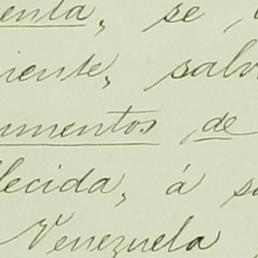 enta, se
iente, salv
umentos, de
lecida, á s
Venezuela